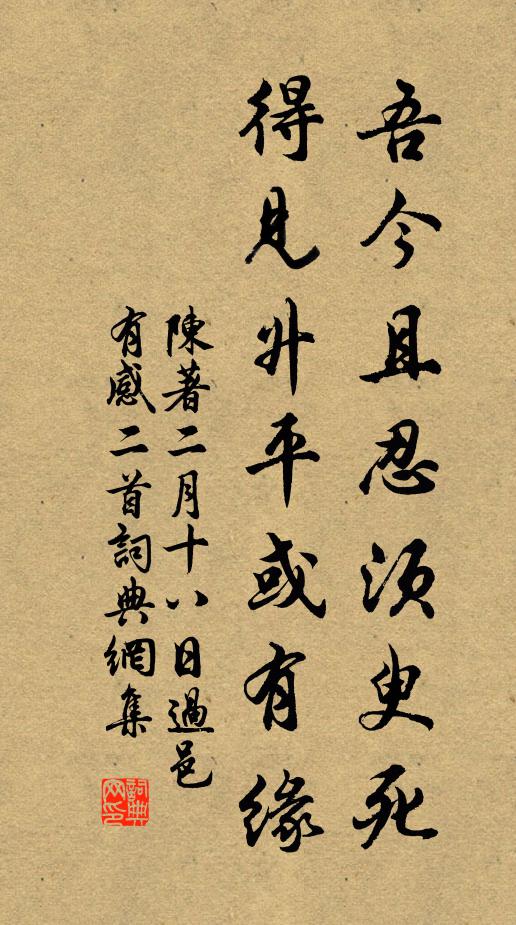 吾今且忍須臾死
得見升平或有緣
陳著二月十八日過邑
有感二首詞典網集
詞典
网印